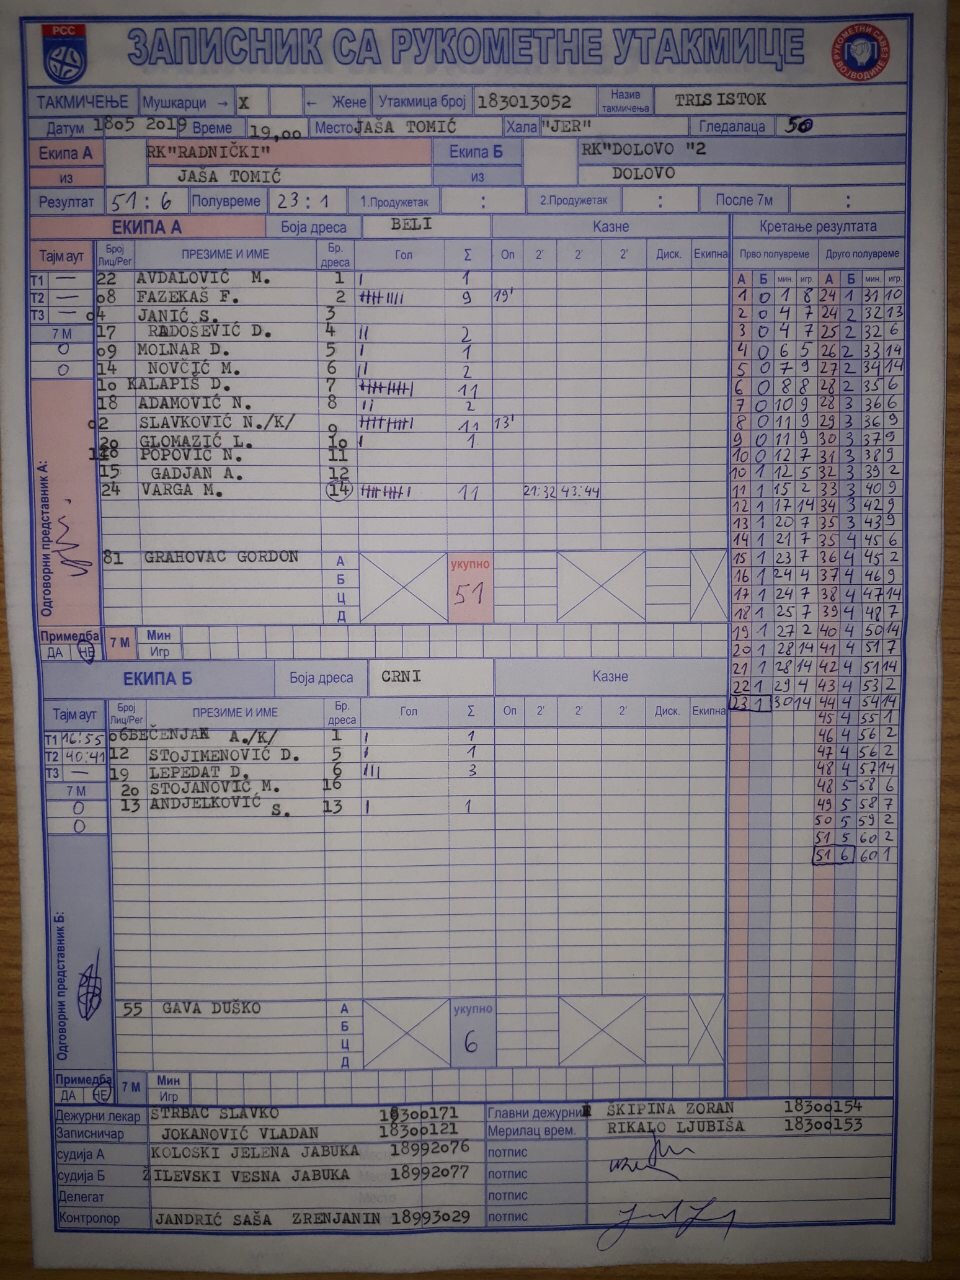 РСС
ЗАПИСНИК СА РУКОМЕТНЕ УТАКМИЦЕ
РУКОМЕТНИ САВЕЗ ВОЈВОДИНЕ
ТАКМИЧЕЊЕ Мушкарци → X ← Жене Утакмица број 183013052 Назив такмичења TRIS ISTOK
Датум 18o5 2019 Време 19,oo Место JAŠA TOMIĆ Хала "JER" Гледалаца 50
Екипа А RK"RADNIČKI" Екипа Б RK"DOLOVO "2
из JAŠA TOMIĆ из DOLOVO
Резултат 51 : 6 Полувреме 23 : 1 1.Продужетак : 2.Продужетак : После 7м :
ЕКИПА А Боја дреса BELI Казне Кретање резултата
Тајм аут Број Лиц/Рег ПРЕЗИМЕ И ИМЕ Бр. дреса Гол Σ Оп 2' 2' 2' Диск. Екипна Прво полувреме Друго полувреме
А Б мин игр. А Б мин игр.
T1 — 22 AVDALOVIĆ M. 1 1
T2 — o8 FAZEKAŠ F. 2 9 19'
T3 — o4 JANIĆ S. 3
7 М 17 RADOŠEVIĆ D. 4 2
0 o9 MOLNAR D. 5 1
0 14 NOVČIĆ M. 6 2
1o KALAPIŠ D. 7 11
18 ADAMOVIĆ N. 8 2
o2 SLAVKOVIĆ N./K/ 9 11 13'
2o GLOMAZIĆ L. 1o 1
POPOVIĆ N. 11
15 GADJAN A. 12
24 VARGA M. 14 11 21:32 43:44
81 GRAHOVAC GORDON А
Б
Ц
Д
укупно
51
Одговорни представник А:
Примедба ДА НЕ 7 М Мин
Игр
1 0 1 8 24 1 31 10
2 0 4 7 24 2 32 13
3 0 4 7 25 2 32 6
4 0 6 5 26 2 33 14
5 0 7 9 27 2 34 14
6 0 8 8 28 2 35 6
7 0 10 9 28 3 36 6
8 0 11 9 29 3 36 9
9 0 11 9 30 3 37 9
10 0 12 7 31 3 38 9
10 1 12 5 32 3 39 2
11 1 15 2 33 3 40 9
12 1 17 14 34 3 42 9
13 1 20 7 35 3 43 9
14 1 21 7 35 4 45 6
15 1 23 7 36 4 45 2
16 1 24 4 37 4 46 9
17 1 24 7 38 4 47 14
18 1 25 7 39 4 48 7
19 1 27 2 40 4 50 14
20 1 28 14 41 4 51 7
21 1 28 14 42 4 51 14
22 1 29 4 43 4 53 2
23 1 30 14 44 4 54 14
45 4 55 1
46 4 56 2
47 4 56 2
48 4 57 14
48 5 58 6
49 5 58 7
50 5 59 2
51 5 60 2
51 6 60 1
ЕКИПА Б Боја дреса CRNI Казне
Тајм аут Број Лиц/Рег ПРЕЗИМЕ И ИМЕ Бр. дреса Гол Σ Оп 2' 2' 2' Диск. Екипна
T1 16:55 o6 BEČENJAK A./K/ 1 1
T2 40:41 12 STOJIMENOVIĆ D. 5 1
T3 — 19 LEPEDAT D. 6 3
7 М 2o STOJANOVIĆ M. 16
0 13 ANDJELKOVIĆ S. 13 1
0
55 GAVA DUŠKO А
Б
Ц
Д
укупно
6
Одговорни представник Б:
Примедба ДА НЕ 7 М Мин
Игр
Дежурни лекар STRBAC SLAVKO 18300171 Главни дежурни ŠKIPINA ZORAN 183oo154
Записничар JOKANOVIĆ VLADAN 183oo121 Мерилац врем. RIKALO LJUBIŠA 183oo153
судија А KOLOSKI JELENA JABUKA 18992o76 потпис
судија Б ŽILEVSKI VESNA JABUKA 18992o77 потпис
Делегат потпис
Контролор JANDRIĆ SAŠA ZRENJANIN 18993o29 потпис